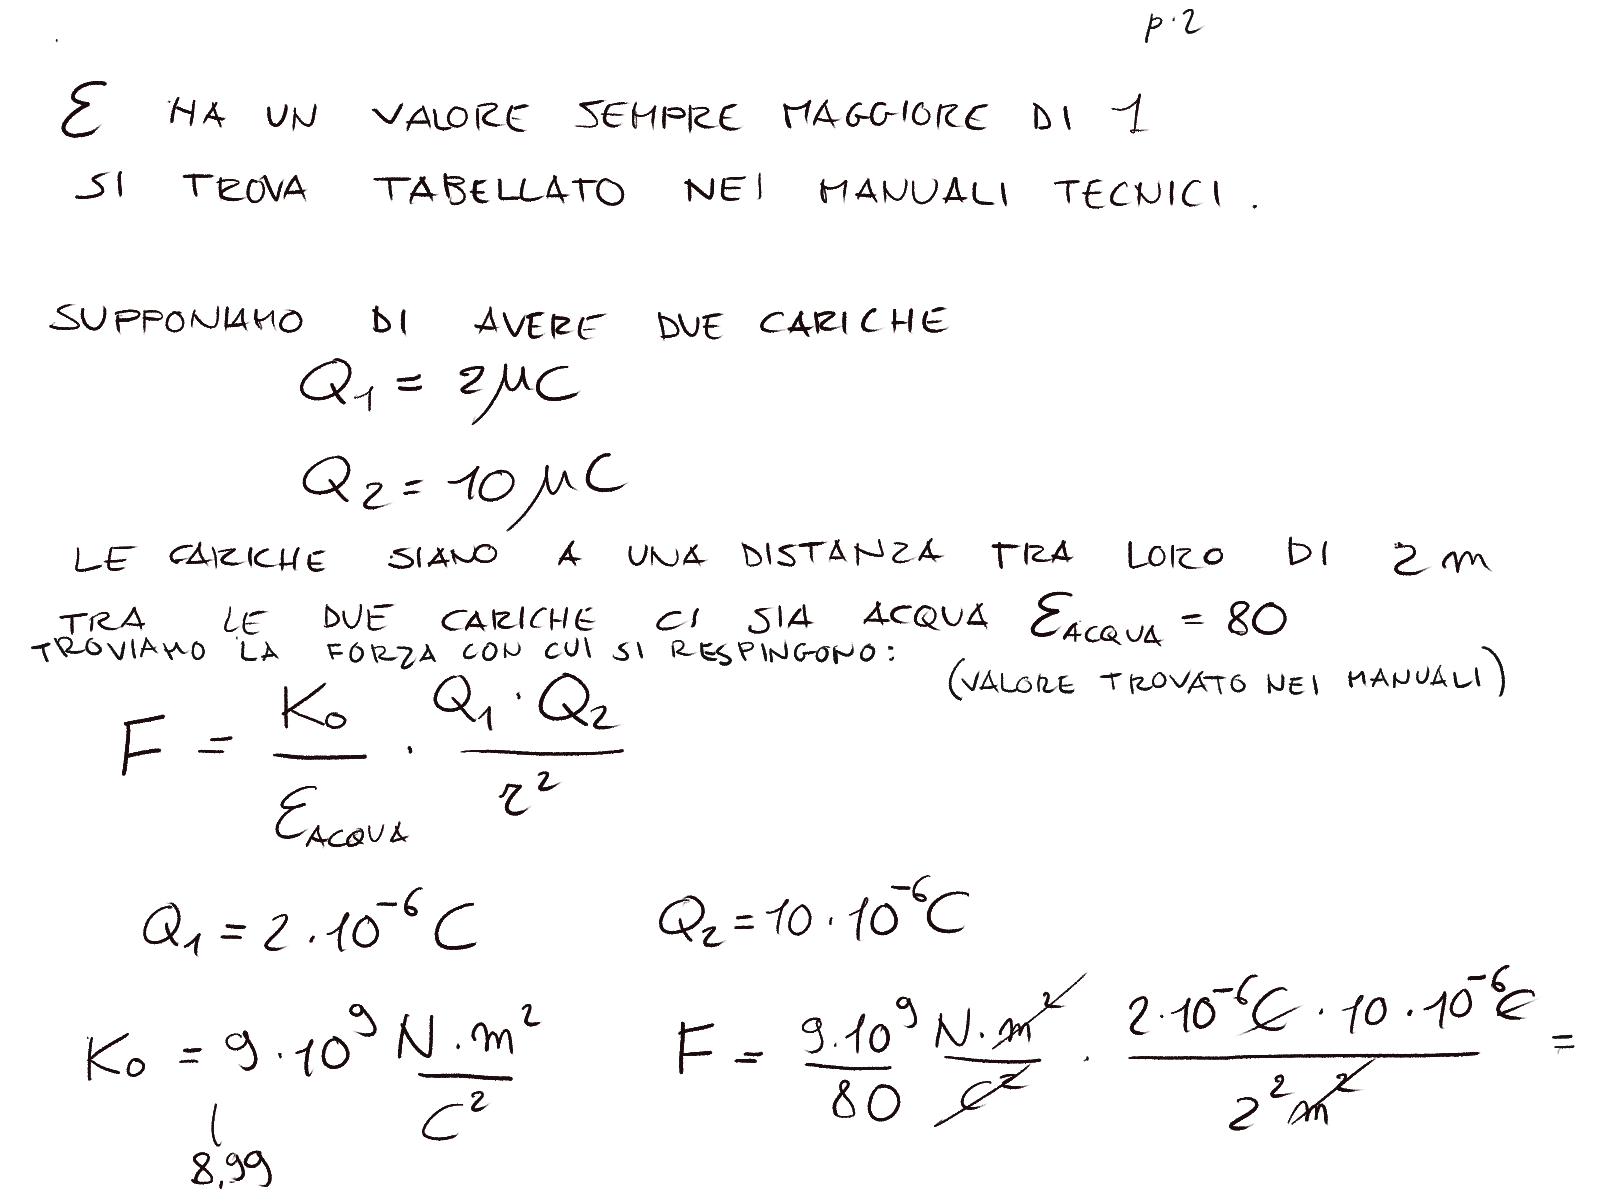 p.2
ε HA UN VALORE SEMPRE MAGGIORE DI 1
SI TROVA TABELLATO NEI MANUALI TECNICI.
SUPPONIAMO DI AVERE DUE CARICHE
Q₁ = 2μC
Q₂ = 10 μC
LE CARICHE SIANO A UNA DISTANZA TRA LORO DI 2 m
TRA LE DUE CARICHE CI SIA ACQUA ε_ACQUA = 80
TROVIAMO LA FORZA CON CUI SI RESPINGONO:
(VALORE TROVATO NEI MANUALI)
F = K₀/ε_ACQUA · Q₁·Q₂/r²
Q₁ = 2·10⁻⁶ C Q₂ = 10·10⁻⁶ C
K₀ = 9·10⁹ N·m²/C² F = 9·10⁹/80 N·m²/C² · 2·10⁻⁶C · 10·10⁻⁶C/2²m² =
8,99